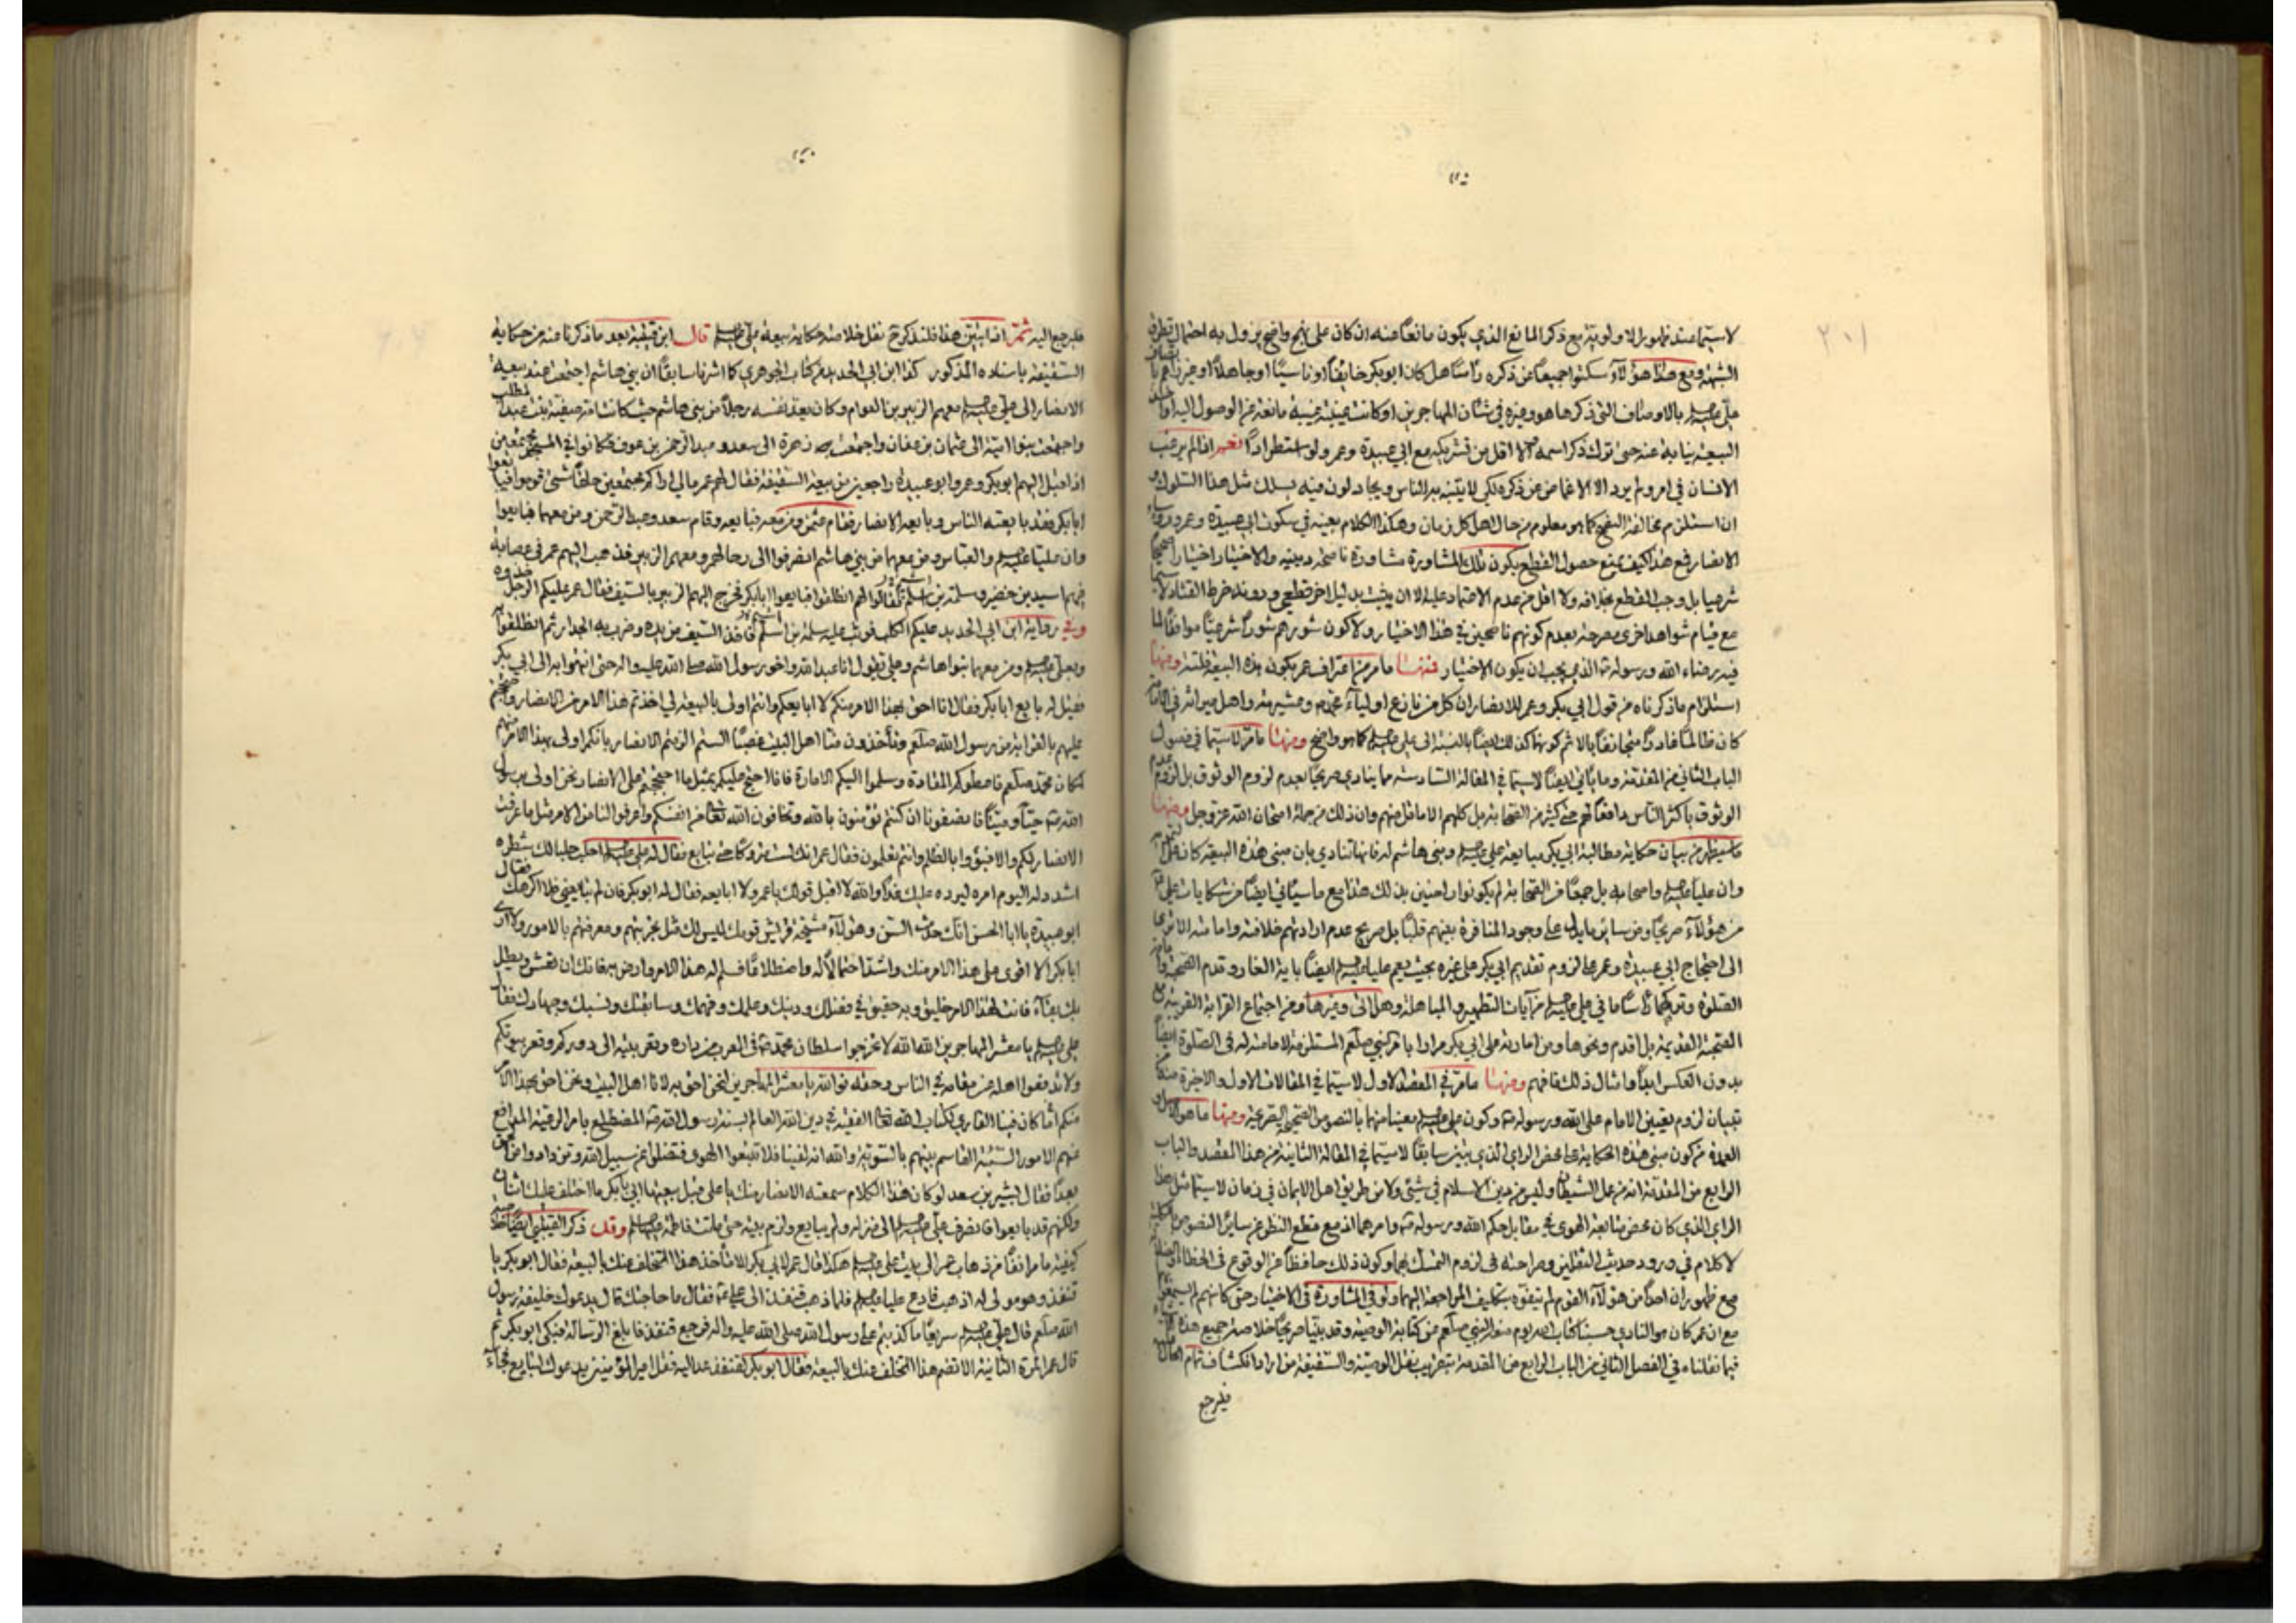 لاسيما عند ظهور الاولوية مع ذكر المانع الذي يكون مانعا منه ان كان على نهج واضح يزول به احتمال تطرق
الشبهة ومع هذا هؤلاء سكتوا جميعا عن ذكره رأسا هل كان ابوبكر خايفا او ناسيا او جاهلا او
على عليه بالاوصاف التي ذكرها هو وغيره في شان المهاجرين او كانت غيبته مانعة عن الوصول اليه
البيعة نيابة عنه حتى ترك ذكر اسمه اقل من تشريكه مع ابي عبيدة وعمر ولو استطرادا نعم اذا لم يرغب
الانسان في امر ولم يرد الا الاغماض عن ذكره لكي لا يتنبه به الناس ويجادلون فيه يسلك مثل هذا السلوك
ان استلزم مخالفة النصح كما هو معلوم من حال اهل كل زمان وهكذا الكلام بعينه في سكوت ابي عبيدة وعمر
الانصار فمع هذا كيف يمنع حصول القطع بكون تلك المشاورة مشاورة ناصحة دينية والاختيار اختيارا صحيحا
شرعيا بل وجب القطع بخلافه ولا اقل من عدم الاعتماد عليه الا ان يثبت بدليل اخر قطعي ودونه خرط القتاد لاسيما
مع قيام شواهد اخرى مصرحة بعدم كونهم ناصحين في هذا الاختيار ولا كون شوراهم شورا شرعيا موافقا لما
فيه رضاء الله ورسوله الذي يجب ان يكون الاختيار فمنها ما مر من اعتراف عمر بكون هذه البيعة فلتة ومنها
استلزام ما ذكرناه من قول ابي بكر وعمر للانصار ان كل من نازع اولياء محمد وعشيرته واهل ميراثه في الامامة
كان ظالما غادرا متجانفا بالاثم كونهما كذلك ايضا بالنسبة الى علي عليه كما هو واضح ومنها ما مر لاسيما في فصول
الباب الثاني من المقدمة وما يأتي ايضا لاسيما في المقالة السادسة مما ينادي صريحا بعدم لزوم الوثوق بل لزوم عدم
الوثوق باكثر الناس دافعا لهم حتى كثير من الصحابة بل كلهم الا ما قل منهم وان ذلك من جملة امتحان الله عز وجل ومنها
ما سيظهر من بيان حكاية مطالبة ابي بكر مبايعة علي عليه وبني هاشم له فانها تنادي بان مبنى هذه البيعة كان على
وان عليا عليه واصحابه بل جمعا من الصحابة لم يكونوا راضين بذلك هذا مع ما سيأتي ايضا من شكايات علي
من هؤلاء صريحا ومن ساير ما يدل على وجود المنافرة بينهم قلبا بل صريح عدم ارادتهم خلافته وامامته الا ترى
الى احتجاج ابي عبيدة وعمر على لزوم تقديم ابي بكر على غيره بحيث يعم عليا عليه ايضا باية الغار وقدم الصحبة
الصلوة وتركهما رأسا ما في علي عليه من آيات التطهير والمباهلة وهل اتى وغيرها ومن اجتماع القرابة القريبة مع
الصحبة القديمة بل اقدم ونحوها ومن امارته على ابي بكر مرارا باقر النبي صلعم المستلزمة لامامته له في الصلوة ايضا
بدون العكس ابدا وامثال ذلك فافهم ومنها ما مر في المقصد الاول لاسيما في المقالات الاول والاخيرة
تبيان لزوم تعيين الامام على الله ورسوله وكون علي عليه معينا منهما بالنصوص الصحيحة الصريحة ومنها ما هو
العمدة من كون مبنى هذه الحكاية على محض الراي الذي تبين سابقا لاسيما في المقالة الثانية من هذا المقصد والباب
الرابع من المقدمة انه من عمل الشيطان وليس من دين الاسلام في شئ ولا من طريق اهل الايمان في زمان لاسيما مثل هذا
الراي الذي كان محض متابعة الهوى في مقابل حكم الله ورسوله وامرهما اذ مع قطع النظر عن سائر النصوص
لا كلام في ورود حديث الثقلين وصراحته في لزوم التمسك بهما وكون ذلك حافظا من الوقوع في الخطا
مع ظهور ان احدا من هؤلاء القوم لم يتفوه بتكليف المراجعة اليهما ولو في المشاورة في الاختيار حتى كانهم لم يسمعوا
مع ان عمر كان هو المنادي حسبنا كتاب الله يوم منع النبي صلعم من كتابة الوصية وقد بينا صريحا خلاصة جميع هذه
فيما نقلناه في الفصل الثاني من الباب الرابع من المقدمة بتقريب نقل الوصية والسقيفة من اراد انكشاف تمام الحال
فليرجع
فليرجع اليه ثم اذا تبين هذا فلنذكر نقل خلاصة حكاية بيعة علي عليه قال ابن قتيبة بعد ما ذكرنا عنه من حكاية
السقيفة باسناده المذكور كذا ابن ابي الحديد من كتاب الجوهري كما اشرنا سابقا ان بني هاشم اجتمعت عند بيعة
الانصار الى علي عليه ومعهم الزبير بن العوام وكان يعد نفسه رجلا من بني هاشم حيث كانت امه صفية بنت عبد المطلب
واجتمعت بنوا امية الى عثمان بن عفان واجتمعت زهرة الى سعد وعبد الرحمن بن عوف فكانوا في المسجد مجتمعين
اذ اقبل اليهم ابوبكر وعمر وابو عبيدة راجعين من بيعة السقيفة فقال لهم عمر مالي اراكم مجتمعين حلقا شتى قوموا فبايعوا
ابابكر فقد بايعته الناس وبايعه الانصار فقام عثمان ومن معه فبايعه وقام سعد وعبد الرحمن ومن معهما فبايعوا
وان عليا عليه والعباس ومن معهما من بني هاشم انصرفوا الى رحالهم ومعهم الزبير فذهب اليهم عمر في عصابة
فيهم اسيد بن حضير وسلمة بن اسلم فقالوا لهم انطلقوا فبايعوا ابابكر فخرج اليهم الزبير بالسيف فقال عمر عليكم الرجل فخذوه
وفي رواية ابن ابي الحديد عليكم الكلب فوثب عليه سلمة بن اسلم فاخذ السيف من يده وضرب به الجدار ثم انطلقوا به
وبعلي عليه ومن معهما بنوا هاشم وعلي يقول انا عبد الله واخو رسول الله صلى الله عليه واله حتى انتهوا به الى ابي بكر
فقيل له بايع ابابكر فقال انا احق بهذا الامر منكم لا ابايعكم وانتم اولى بالبيعة لي اخذتم هذا الامر من الانصار واحتججتم
عليهم بالقرابة من رسول الله صلعم وتأخذون منا اهل البيت غصبا الستم الزعمتم الانصار بانكم اولى بهذا الامر منهم
لمكان محمد صلعم فاعطوكم المقادة وسلموا اليكم الامارة فانا احتج عليكم بمثل ما احتججتم على الانصار نحن اولى برسول
الله حيا وميتا فانصفونا ان كنتم تؤمنون بالله وتخافون الله من انفسكم واعرفوا لنا من الامر مثل ما عرفت
الانصار لكم والا فبوؤا بالظلم وانتم تعلمون فقال عمر انك لست متروكا حتى تبايع فقال له علي عليه احلب حلبا لك شطره
اشدد له اليوم امره ليرده عليك غدا والله لا اقبل قولك يا عمر ولا ابايعه فقال له ابوبكر فان لم تبايعني فلا اكرهك فقال
ابو عبيدة يا ابا الحسن انك حدث السن وهؤلاء مشيخة قريش قومك ليس لك مثل تجربتهم ومعرفتهم بالامور ولا ارى
ابابكر الا اقوى على هذا الامر منك واشد احتمالا له واضطلاعا فسلم له هذا الامر وارض به فانك ان تعش ويطل
بك بقاء فانت لهذا الامر خليق وبه حقيق في فضلك ودينك وعلمك وفهمك وسابقتك ونسبك وجهادك فقال
علي عليه يا معشر المهاجرين الله الله لا تخرجوا سلطان محمد في العرب من داره وقعر بيته الى دوركم وقعر بيوتكم
ولا تدفعوا اهله عن مقامه في الناس وحقه فو الله يا معشر المهاجرين لنحن احق به لانا اهل البيت ونحن احق بهذا الامر
منكم اما كان فينا القاري لكتاب الله الفقيه في دين الله العالم بسنة رسول الله المضطلع بامر الرعية المدافع
عنهم الامور السيئة القاسم بينهم بالسوية والله انه لفينا فلا تتبعوا الهوى فتضلوا عن سبيل الله وتزدادوا من الحق
بعدا فقال بشير بن سعد لو كان هذا الكلام سمعته الانصار منك يا علي قبل بيعتها ابي بكر ما اختلف عليك اثنان
ولكنهم قد بايعوا فانصرف علي عليه الى منزله ولم يبايع ولزم بيته حتى ماتت فاطمة وقد ذكر القتيبي ايضا
كيفية ما مر انفا من ذهاب عمر الى بيت علي عليه هكذا قال عمر لابي بكر الا تأخذ هذا المتخلف عنك بالبيعة فقال ابوبكر يا
قنفذ وهو مولى له اذهب فادع عليا عليه فلما ذهب قنفذ الى علي فقال ما حاجتك قال يدعوك خليفة رسول
الله صلعم قال علي عليه سريعا ما كذبتم على رسول الله صلى الله عليه واله فرجع قنفذ فابلغ الرسالة فبكى ابوبكر ثم
قال عمر المرة الثانية الا تضم هذا المتخلف عنك بالبيعة فقال ابوبكر لقنفذ عد اليه فقل امير المؤمنين يدعوك لتبايع فجاءه